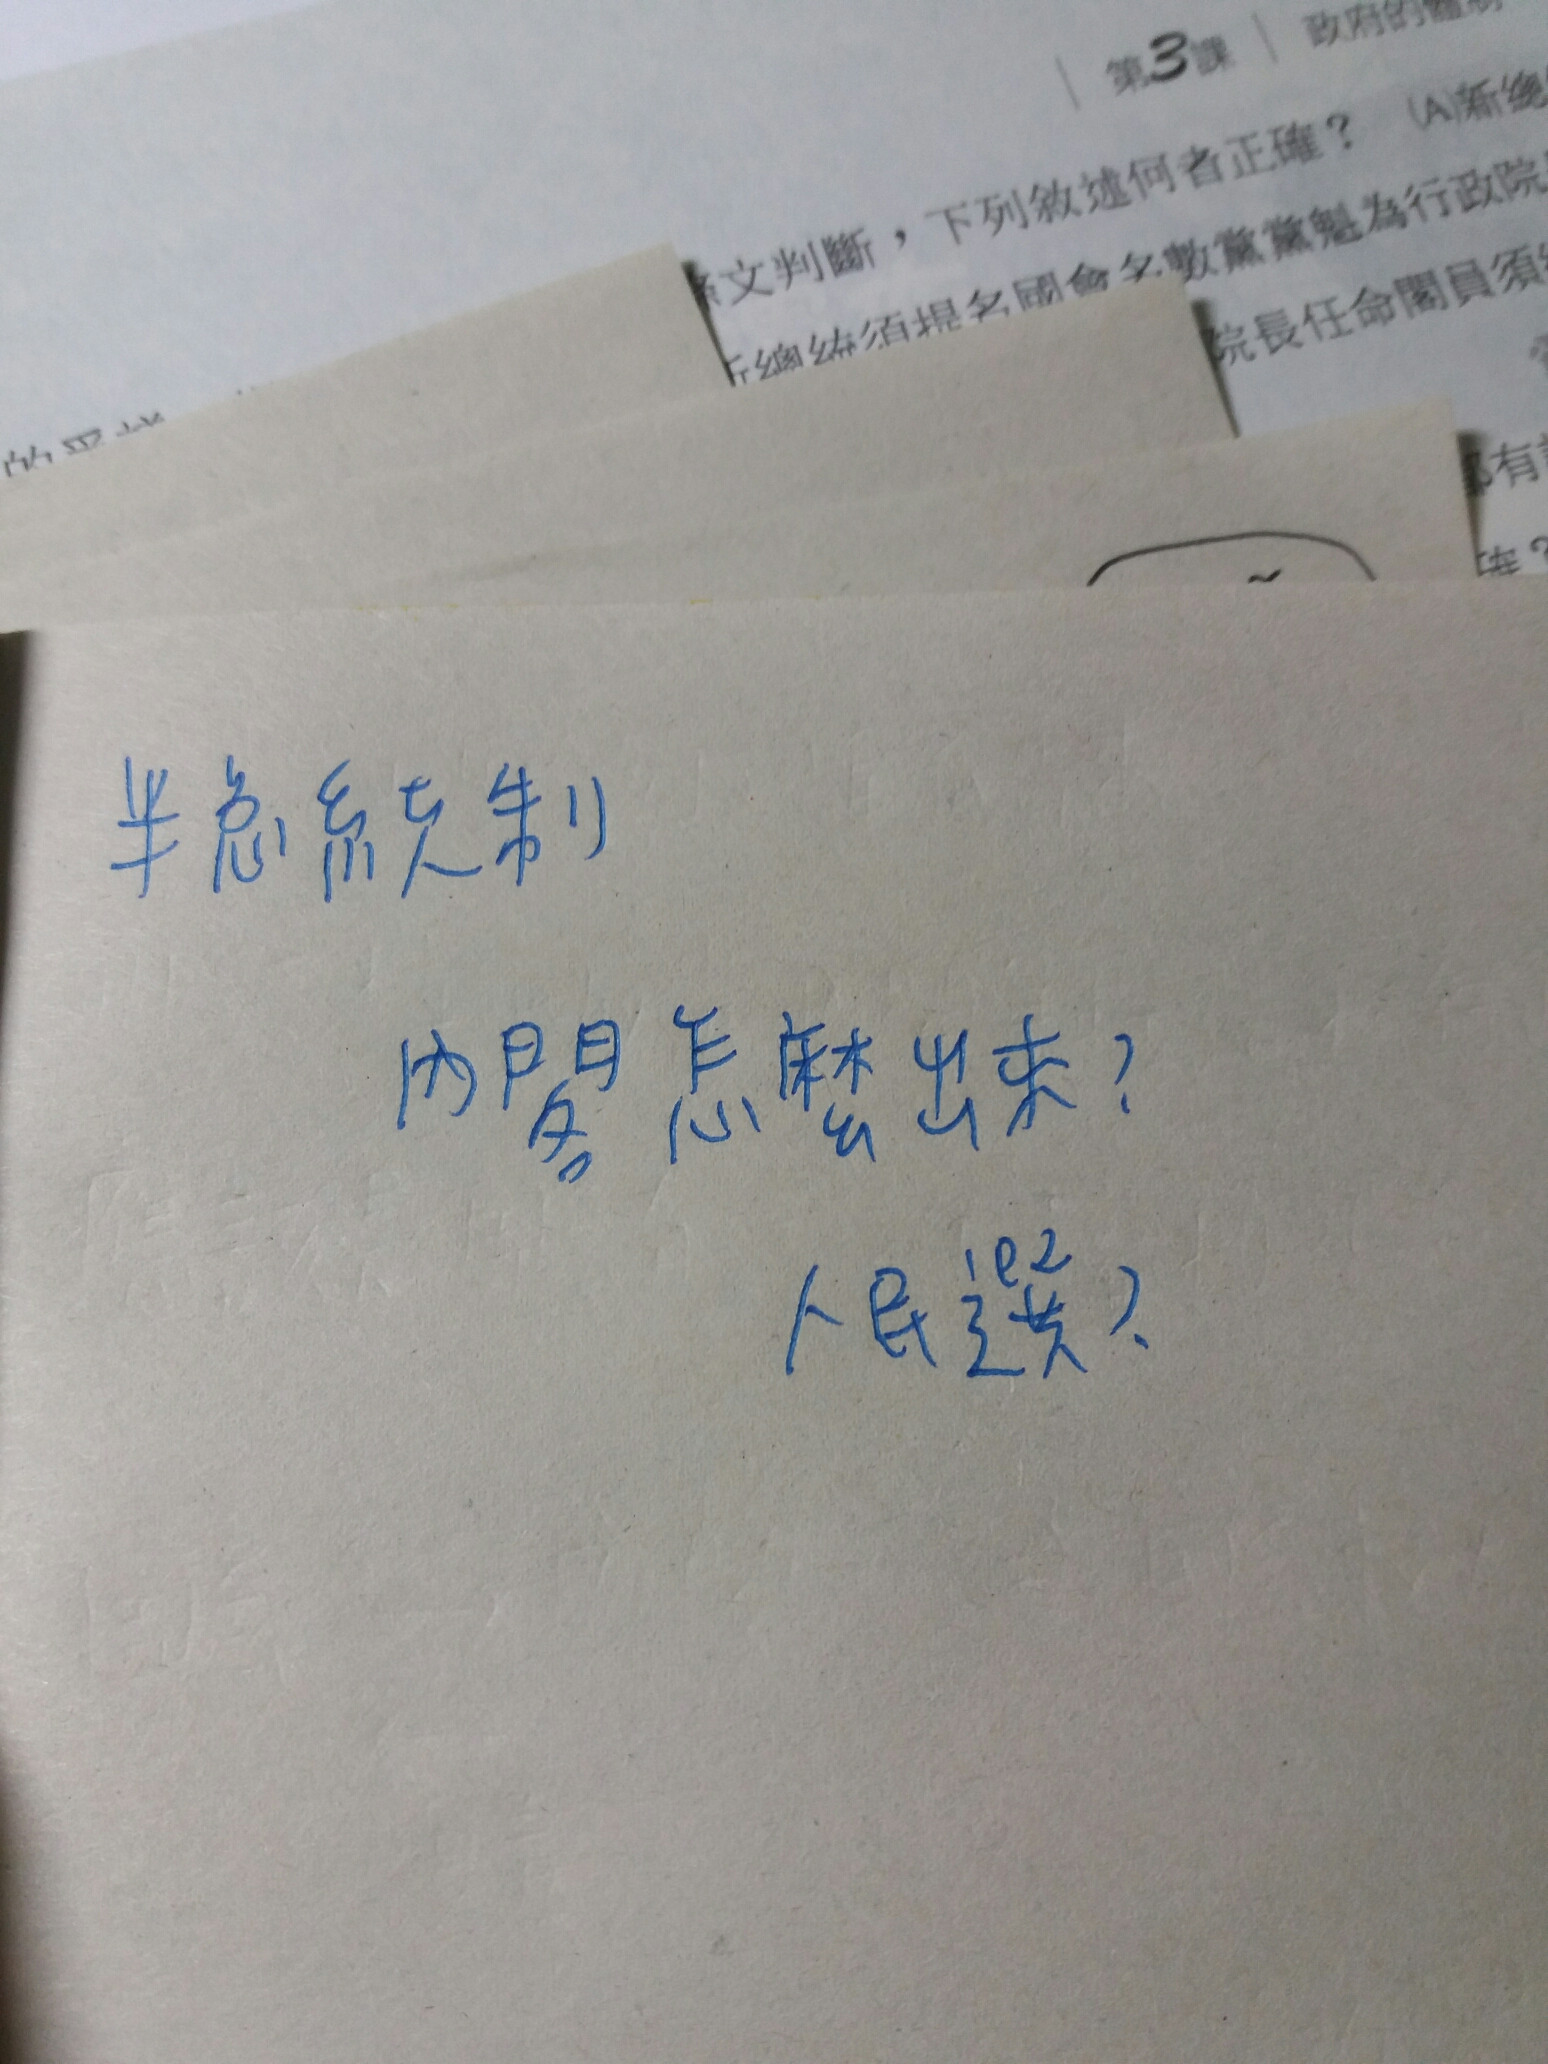 第3課 政府的體制
文判斷，下列敘述何者正確？ (A)新總
新總統須提名國會多數黨黨魁為行政院
院長任命閣員須
的
都有
確？
半總統制
內閣怎麼出來？
人民選？